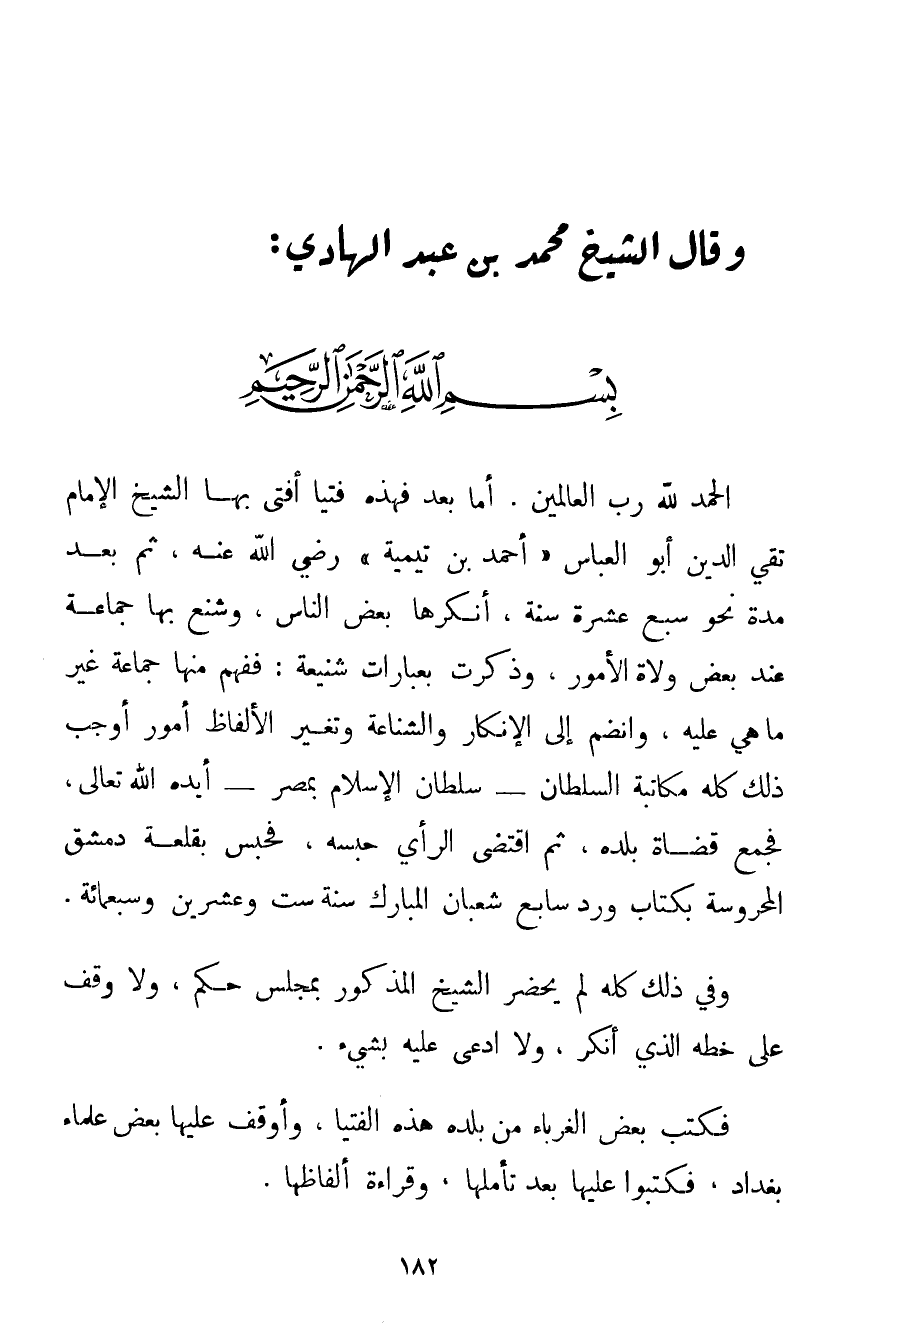 وقال الشيخ محمد بن عبد الهادي:
بسم الله الرحمن الرحيم
الحمد لله رب العالمين . أما بعد فهذه فتيا أفتى بهــا الشيخ الإمام
تقي الدين أبو العباس « أحمد بن تيمية » رضي الله عنــه ، ثم بعــد
مدة نحو سبع عشرة سنة ، أنــكرها بعض الناس ، وشنع بها جماعــة
عند بعض ولاة الأمور ، وذكرت بعبارات شنيعة : ففهم منها جماعة غير
ما هي عليه ، وانضم إلى الإنكار والشناعة وتغــير الألفاظ أمور أوجب
ذلك كله مكاتبة السلطان — سلطان الإسلام بمصر — أيده الله تعالى ،
فجمع قضــاة بلده ، ثم اقتضى الرأي حبسه ، فحبس بقلعــة دمشق
المحروسة بكتاب ورد سابع شعبان المبارك سنة ست وعشرين وسبعمائة .
وفي ذلك كله لم يحضر الشيخ المذكور بمجلس حــكم ، ولا وقف
على خطه الذي أنكر ، ولا ادعى عليه بشيء .
فــكتب بعض الغرباء من بلده هذه الفتيا ، وأوقف عليها بعض علماء
بغداد ، فــكتبوا عليها بعد تأملها ، وقراءة ألفاظها .
١٨٢